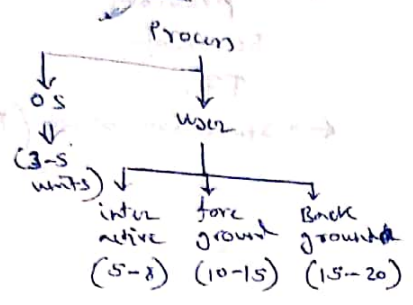 Process
OS
User
(3-5
units)
inter
active
(5-8)
fore
ground
(10-15)
Back
ground
(15-20)